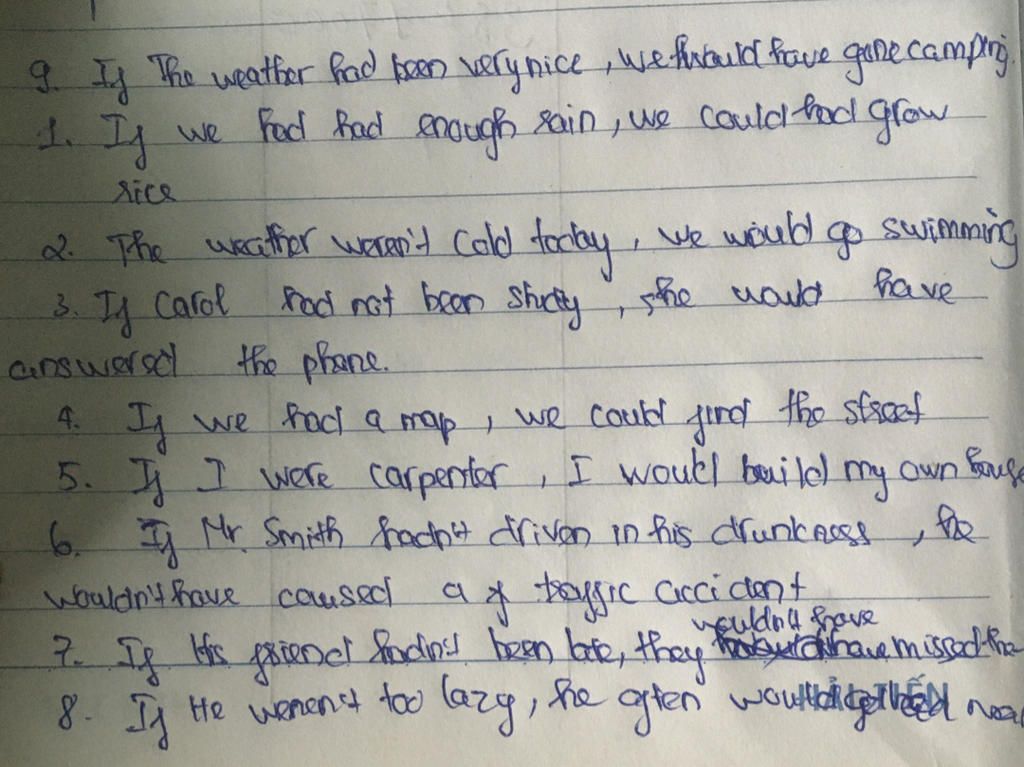 9. If The weather had been very nice, we would have gone camping.
1. If we had had enough rain, we could had grow
rice
2. The weather weren't cold today, we would go swimming
3. If Carol had not been study, she would have
answered the phone.
4. If we had a map, we could find the street
5. If I were carpenter, I would build my own house
6. If Mr. Smith hadn't driven in his drunkness, he
wouldn't have caused a traffic accident
wouldn't have
7. If His friend hadn't been late, they missed the
8. If He weren't too lazy, he often